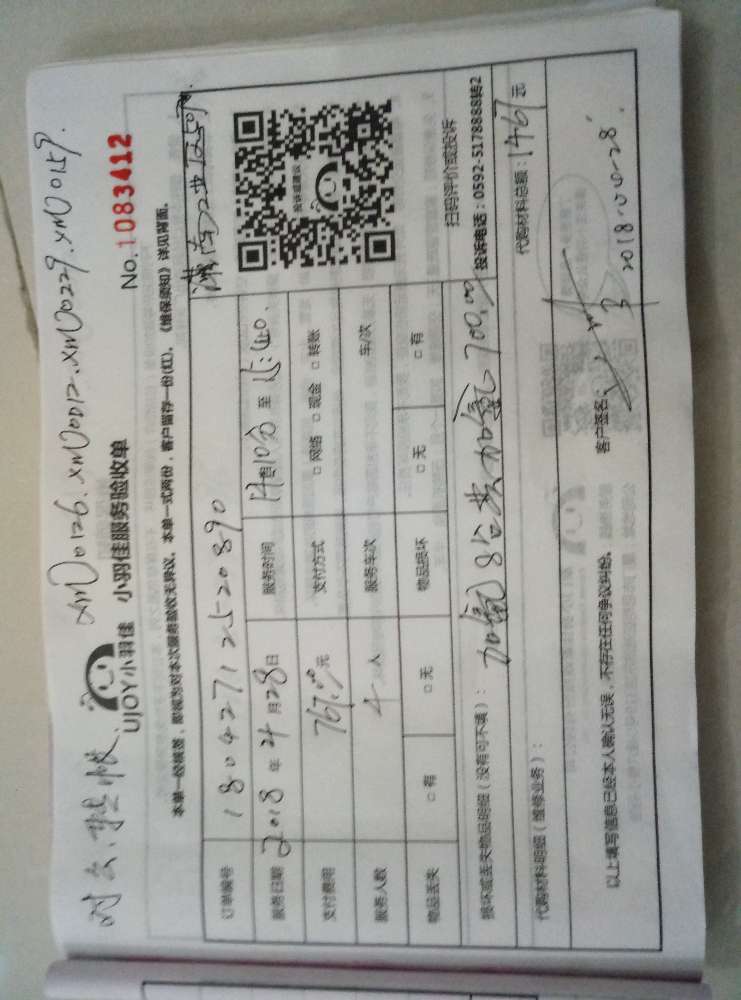 XM0126.XM0012.XM0229.XM0159.
UJOY小羽佳 小羽佳服务验收单 No.1083412
本单一经核签，即视为对本次服务验收无异议，本单一式两份，客户留存一份(红)，《维保须知》详见背面。
订单编号 180427125520890
服务日期 2018年4月28日 服务时间 至 15:40
支付费用 767.00元 支付方式 □网络 □现金 □转账
服务人数 4人 服务车次 车/次
物品丢失 □有 □无 物品损坏 □无 □有
投诉或建议
扫码评价或投诉
投诉电话：0592-5178888转2
损坏或丢失物品明细（没有可不填）： 加氟8台 700.00
代购材料明细（维修业务）： 代购材料总额：1467元
以上填写信息已经本人确认无误，不存在任何争议纠纷。 客户签名：